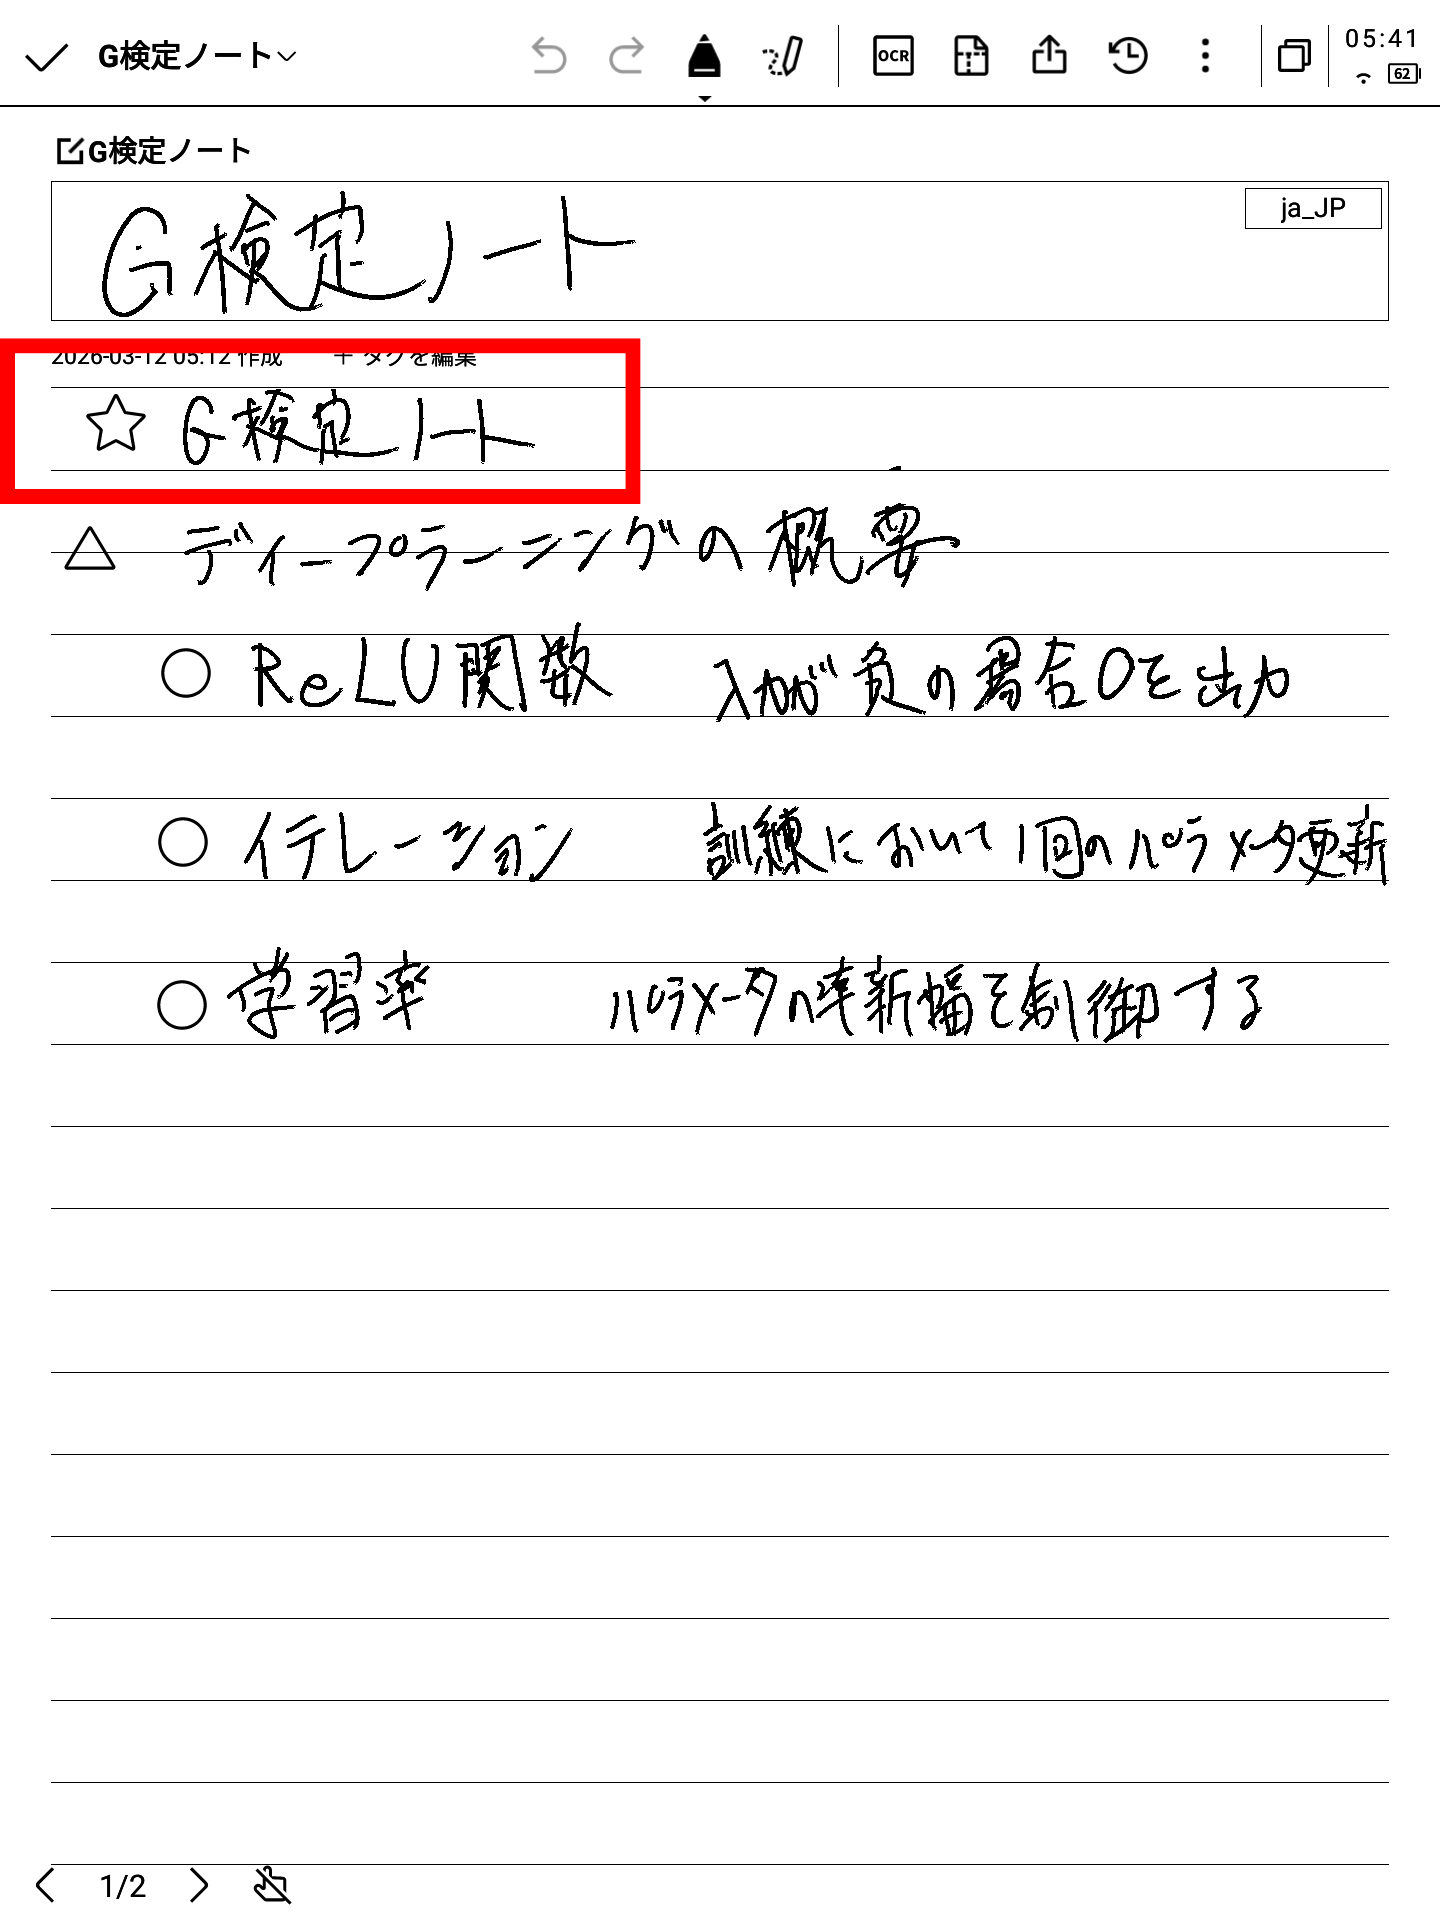 G検定ノート
OCR
05:41
62
G検定ノート
ja_JP
G検定ノート
2026-03-12 05:12 作成 + タグを編集
☆ G検定ノート
△ ディープラーニングの概要
○ ReLU関数 入力が負の場合0を出力
○ イテレーション 訓練において1回のパラメータ更新
○ 学習率 パラメータの率新幅を制御する
1/2